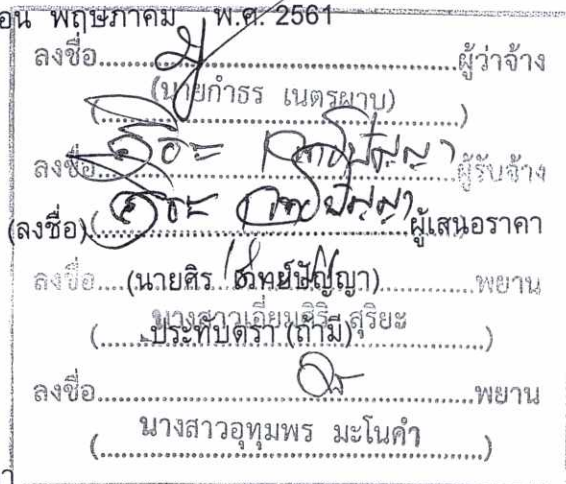 อน พฤษภาคม พ.ศ. 2561
ลงชื่อ....................ผู้ว่าจ้าง
(นายกำธร เนตรผาบ)
ลงชื่อ....................ผู้รับจ้าง
(ลงชื่อ)....................ผู้เสนอราคา
ลงชื่อ....................พยาน
(นายศิร ปัญญา)
(นางสาวเอี่ยมสิริ สุริยะ)
ประทับตรา (ถ้ามี)
ลงชื่อ....................พยาน
(นางสาวอุทุมพร มะโนคำ)